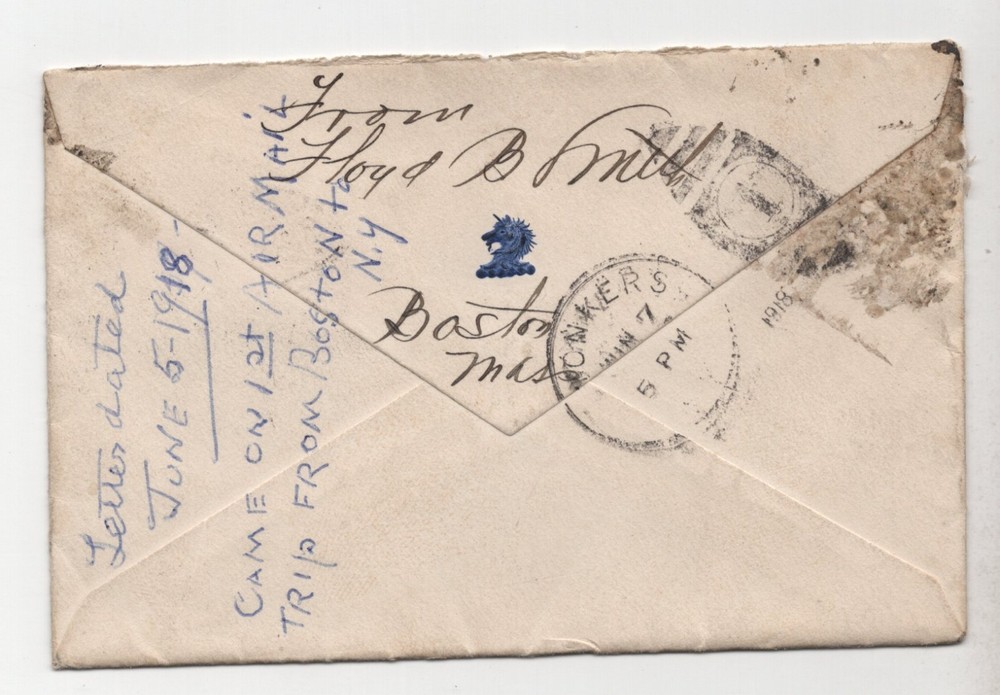 From
Floyd B Smith
Boston
Mass
YONKERS
JUN 7
5 PM
1918
1
Letter dated
JUNE 5-1918-
CAME ON 1st AIR MAIL
TRIP FROM BOSTON to
N.Y